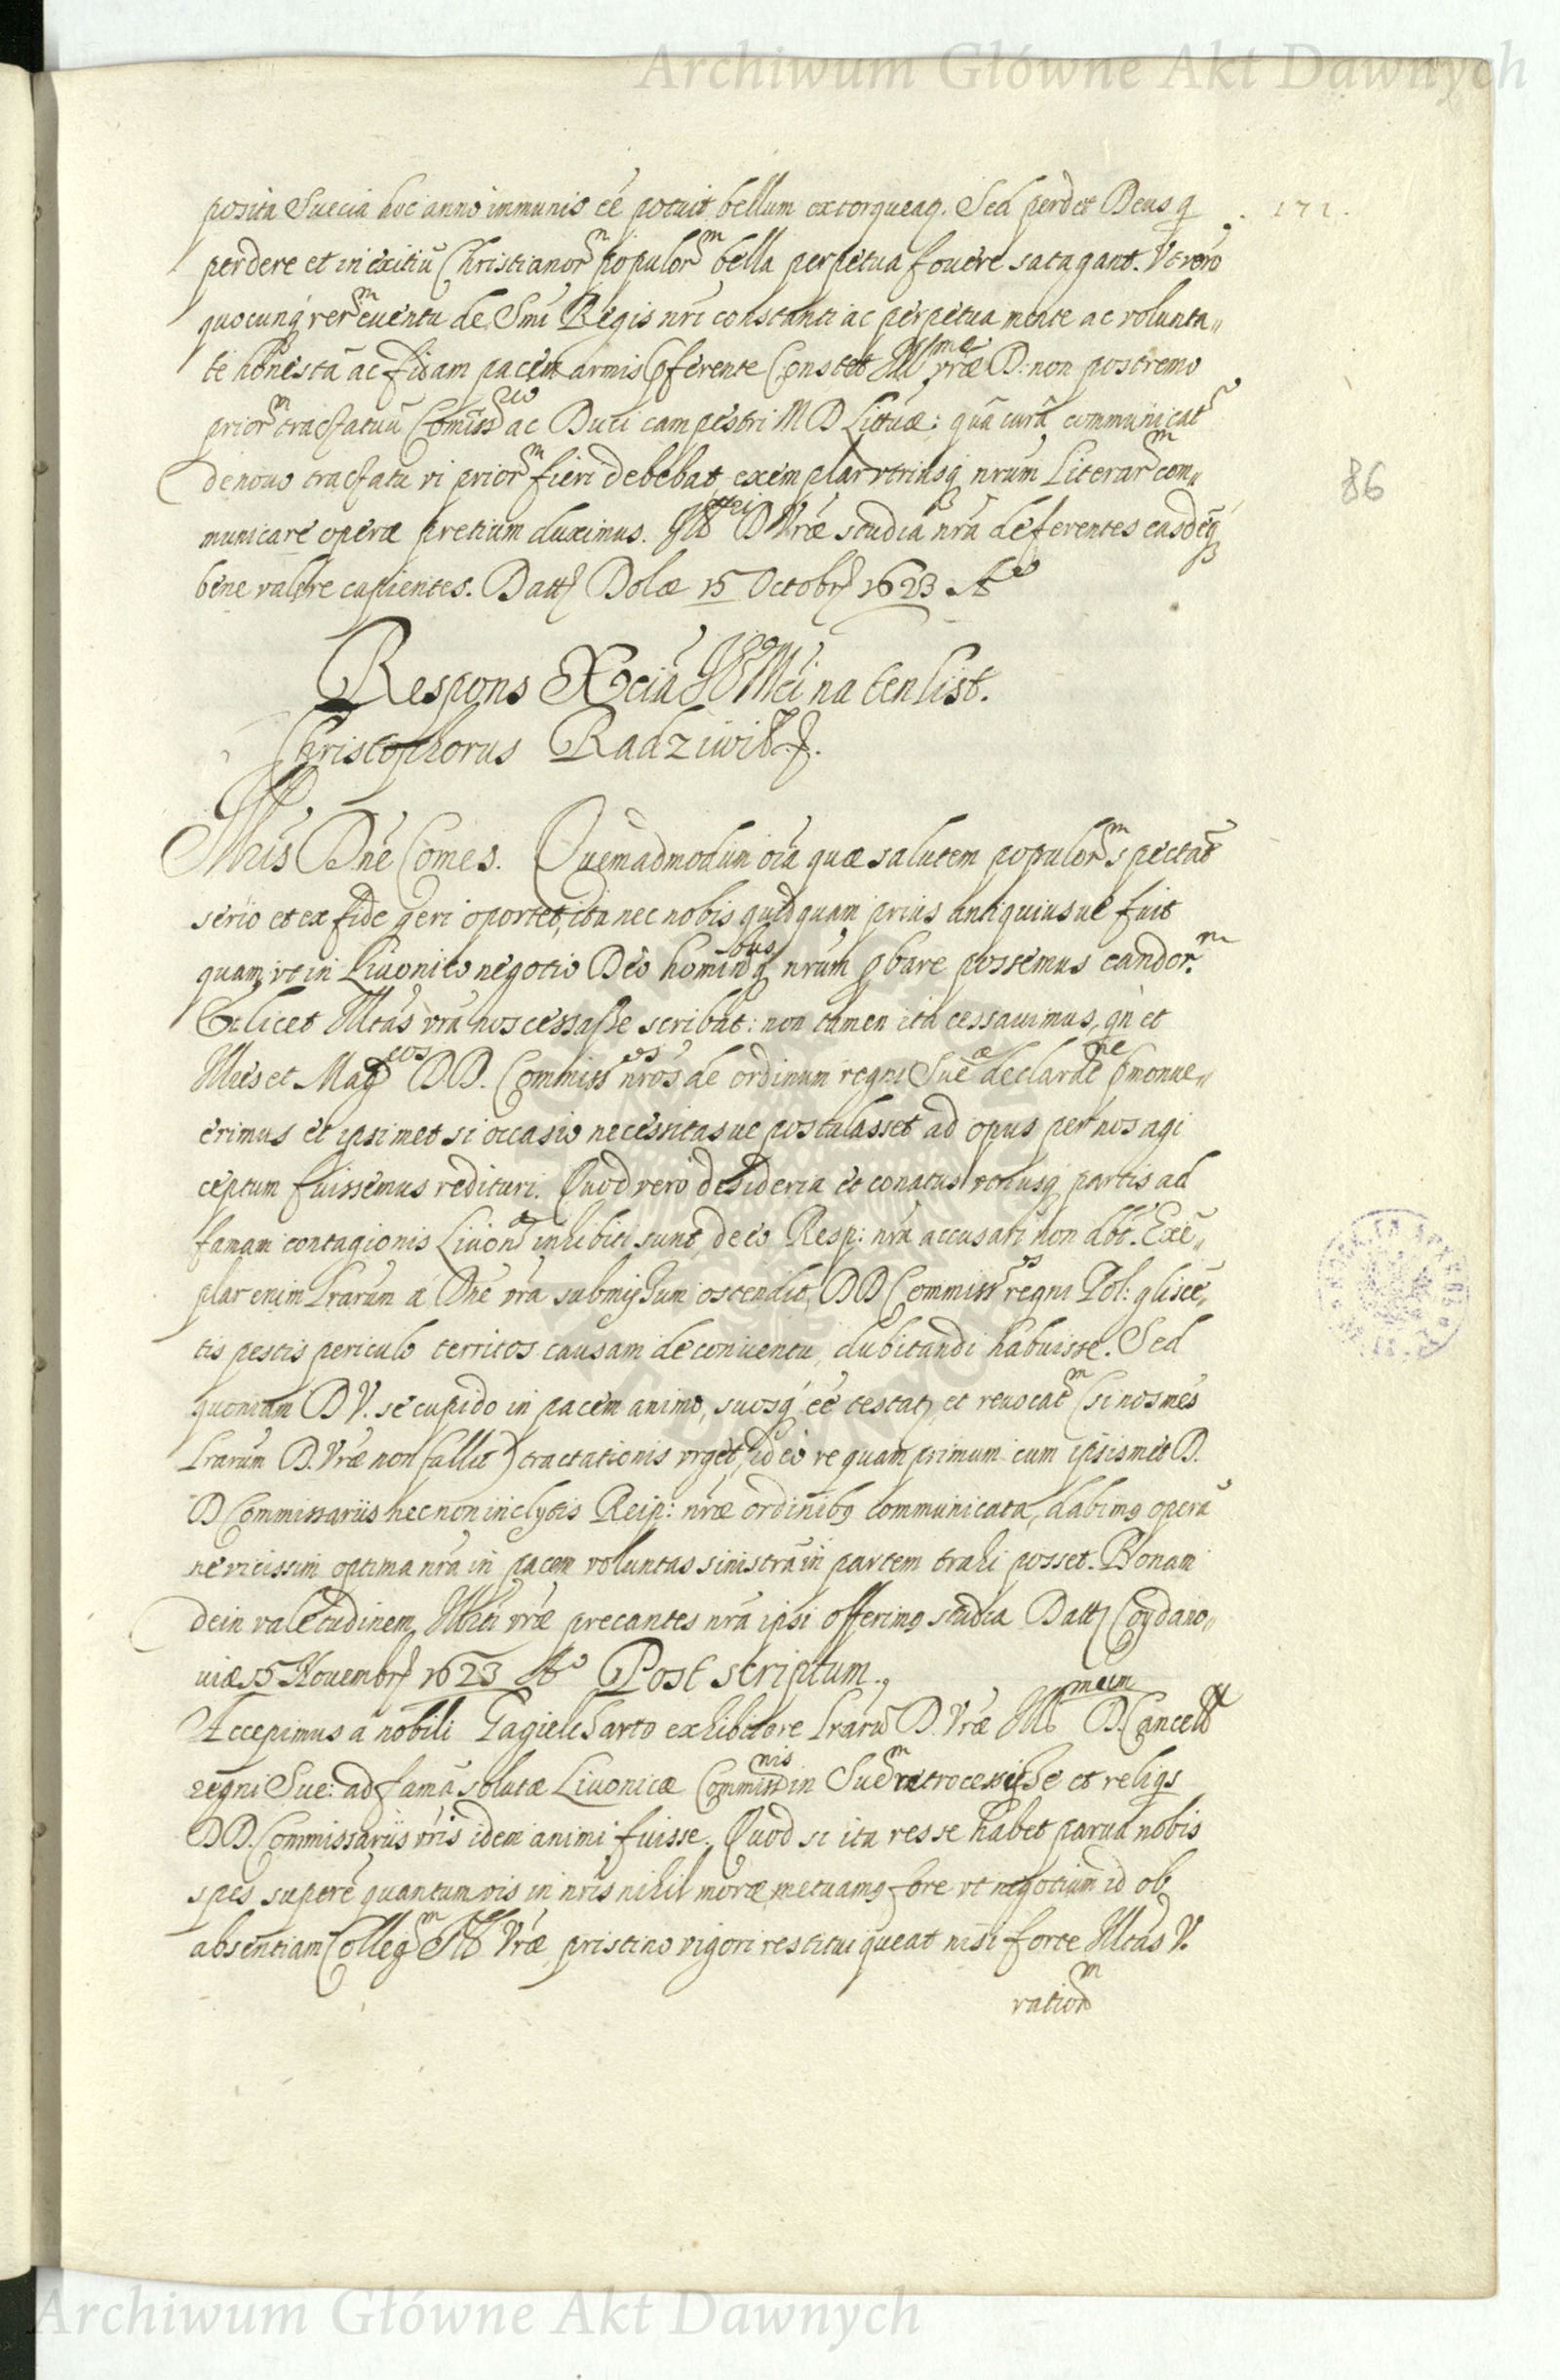 Archiwum Główne Akt Dawnych
posita Suecia hoc anno immunis eé potuit bellum extorqueaq. Sed perdet Deus q
. 171.
perdere et in exitiũ Christianorm populorm bella perpetua fouere satagant. Vt vero
quocunq rerm euentu de Smi Regis nri constanti ac perpetua mente ac volunta„
te honestã ac fidam pacem armis pferente Constet Illmæ vræ D: non postremo
priorm tractatuũ Comissrio ac Duci campestri M D Littuæ: quã curã communicat
de nouo tractatu vti priorm fieri debebat, exemplar vtriusq nrum Literarm com„
86
municare operæ pretium duximus. Ill D Vræ studia nra deferentes easdéq
bene valere cupientes. Datt Dolæ 15 Octobr 1623 Ao
Respons Xcia JEo Mci na ten list.
Christophorus Radziwił.
Illris Dne Comes. Quemadmodum oia quæ salutem populorm spectat
serio et ex fide geri oportet, ita nec nobis quidquam prius antiquiusue fuit
quam, vt in Liuonico negotio Deo hominbusq nrum pbare possemus candor.m
Et licet Illtas vra nos cessasse scribat: non tamen ita cessauimus, qn et
Illres et Mageos DD. Commissos nros de ordinum regni Sueæ declarne pmonue„
erimus et ipsimet si occasio necessitasue postulasset ad opus per nos agi
ceptum fuissemus redituri. Quod vero desideria et conatus vtriusq partis ad
famam contagionis Liuon inhibiti sunt de eo Resp: nra accusari non dbt. Exe„
plar enim Lrarum a Dne vra submissum ostendit, DD Commissos regni Pol: glisce„
tis pestis periculo territos causam de conuentu, dubitandi habuisse. Sed
quoniam D V. se cupido in pacem animo, suosq eé testat, et reuocatm (si nos mes
Lrarum D. Vræ non fallit) tractationis vrget, id eo re quam primum cum ipsismet D.
D Commissariis nec non inclytis Reip: nræ ordinibq communicata, dabimq operã
ne vicissim optima nra in pacem voluntas sinistrã in partem trahi posset. Bonam
dein valetudinem Illti vræ precantes nra ipsi offerimq studia Datt Coydano„
uiæ 15 Nouembr 1623 Ao Post scriptum.,
Accepimus a nobili exhibitore lrarũ D. Vræ Illmum D. Cancell
regni Sue: ad famã solutæ Liuonicæ Commissnis in Suem retrocessisse et reliqs
DD. Commissariis vris idem animi fuisse. Quod si ita res se habet parua nobis
spes supere quantumvis in nris nihil moræ, metuamq fore vt negotium id ob
absentiam Collegm Vræ pristino vigori restitui queat nisi forte Illtas V.
rationm
Archiwum Główne Akt Dawnych